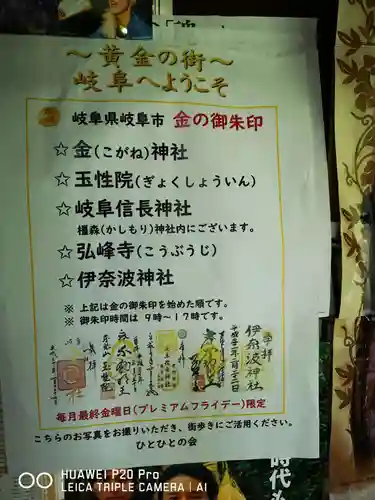 ～黄金の街～
岐阜へようこそ
岐阜県岐阜市 金の御朱印
☆ 金(こがね)神社
☆ 玉性院(ぎょくしょういん)
☆ 岐阜信長神社
橿森(かしもり)神社内にございます。
☆ 弘峰寺(こうぶうじ)
☆ 伊奈波神社
※ 上記は金の御朱印を始めた順です。
※ 御朱印時間は 9時～17時です。
伊奈波神社
毎月最終金曜日(プレミアムフライデー)限定
こちらのお写真をお撮りいただき、街歩きにご活用ください。
ひとひとの会
時代
HUAWEI P20 Pro
LEICA TRIPLE CAMERA | AI